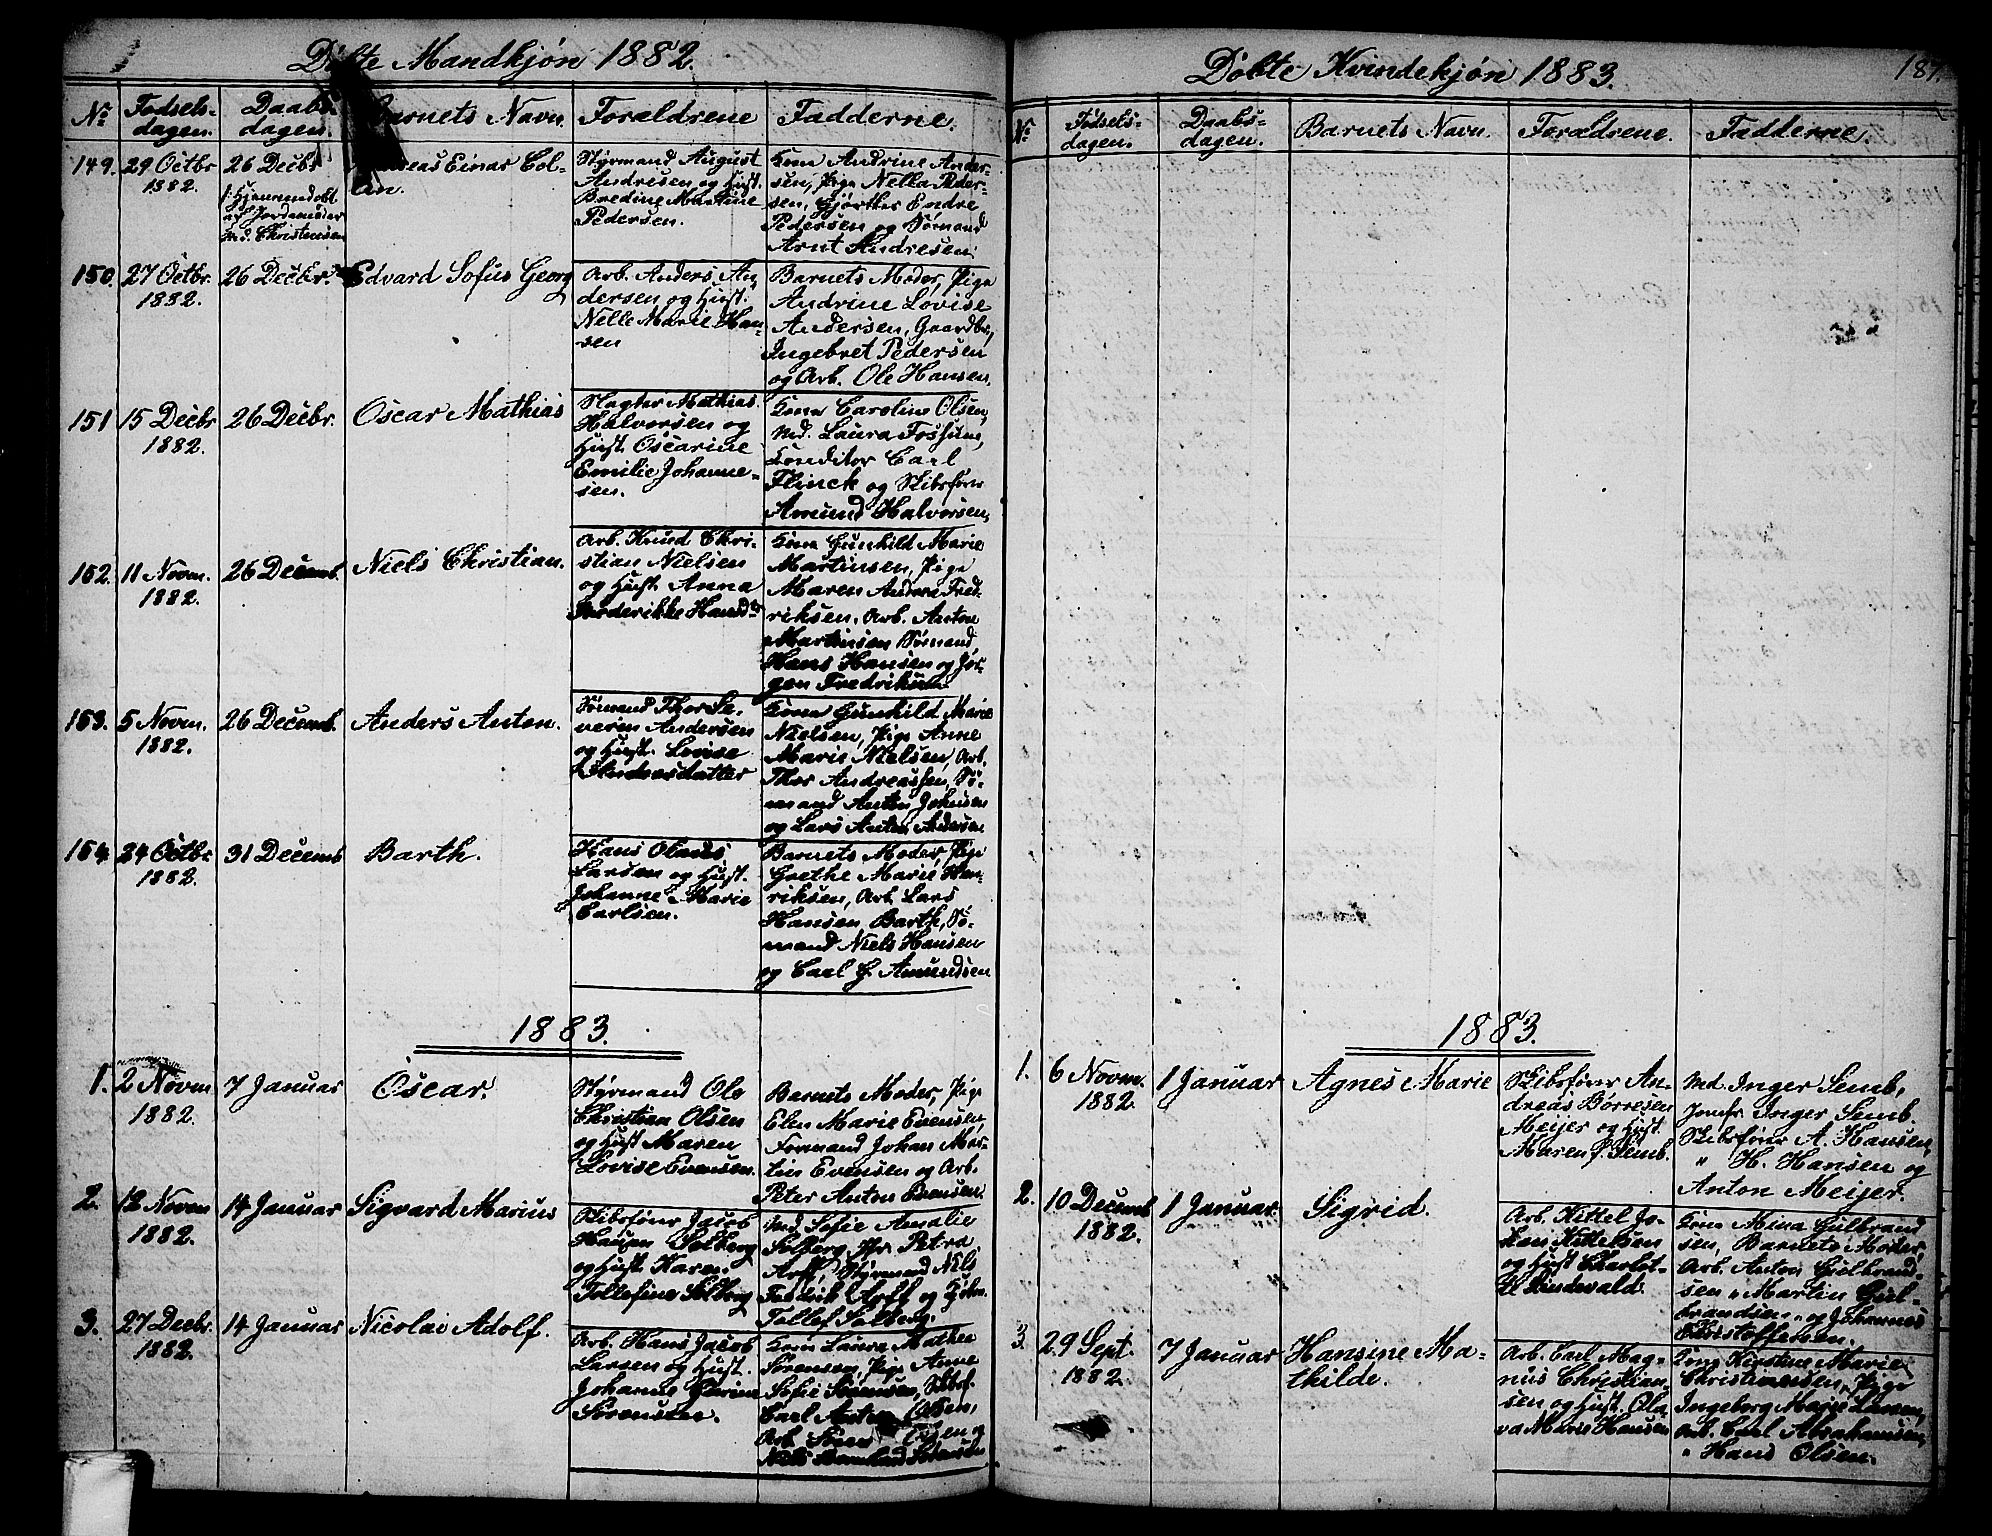 Døbte Mandkjøn 1882.
No
Fødsels-
dagen.
Daabs-
dagen.
Barnets Navn.
Forældrene
Fadderne.
149.
29 Octbr
1882.
26 Decbr
Christensen
Andreas Einar Col-
lin.
Styrmand August
Andresen og Hust.
Bredine Martine
Pedersen.
Kone Andrine Ander-
sen, Pige Nella Peder-
sen, Gjørtler Endre
Pedersen og Sømand
Arnt Andresen.
150.
27 Octbr.
1882.
26 Decbr.
Edvard Sofus Georg
Arb. Anders An-
dersen og Hust.
Nelle Marie Han-
sen
Barnets Moder, Pige
Andrine Lovise
Andersen, Gaardbr.,
Ingebret Pedersen
og Arb. Ole Hansen.
151
15 Decbr
1882.
26 Decbr.
Oscar Mathias
Slagter Mathias
Halvorsen og
Hust. Oscarine
Emilie Johanne-
sen.
Kone Caroline Olsen,
Md. Laura Fossum,
Conditor Carl
Flinck og Skibsfører
Amund Halvorsen,
152.
11 Novm.
1882.
26 Decemb.
Niels Christian.
Arb. Knud Chri-
stian Nielsen
og Hust. Anna
Frederikke Hansdr
Kone Gunhild Marie
Martinsen, Pige
Maren Andrea Fred-
riksen, Arb. Anton
Martinsen Sømand
Hans Hansen og Jør-
gen Fredriksen
153.
5 Novm.
1882.
26 Decemb.
Anders Anton.
Sømand Thor Se-
verin Andersen
og Hust. Lovise
Andersdatter
Kone Gunhild Marie
Nielsen, Pige Anne
Marie Nielsen, Arb.
Thor Andreassen, Sø-
mand Anton Johnsen
og Lars Anton Andersen
154.
24 Octbr
1882.
31 Decemb
Barth.
Hans Olaus
Larsen og Hust.
Johanne Marie
Carlsen.
Barnets Moder, Pige
Grethe Marie Hen-
riksen, Arb. Lars
Hansen Barth, Sø-
mand Niels Hansen
og Carl G. Amundsen
1883.
1.
2 Novm
1882.
7 Januar
Oscar.
Styrmand Ole
Christian Olsen
og Hust Maren
Lovise Evensen.
Barnets Moder, Pige
Elen Marie Evensen,
Formand Johan Mar-
tin Evensen og Arb.
Peter Anton Evensen.
2.
12 Novm
1882.
14 Januar
Sigvard Marius
Skibsfører Jacob
Hansen Solberg
og Hust. Karen
Tollefine Solberg
Md Sofie Amalie
Solberg, Jfr. Petra
Arff, Styrmand Nils
Fredrik Arff og
Tollef Solberg.
3.
27 Decbr.
1882.
14 Januar
Nicolai Adolf.
Arb. Hans Jacob
Larsen og Hust.
Johanne
Sørensen.
Kone Laura Mathea
Sørensen, Pige Anne
Sofie Sørensen, Skibsf.
Carl Anton Olsen,
Arb. Olsen og
Døbte Kvindekjøn 1883.
187.
No
Fødsels-
dagen.
Daabs-
dagen.
Barnets Navn.
Forældrene.
Fadderne.
1883.
1.
6 Novm.
1882.
1 Januar
Agnes Marie
Skibsfører An-
dreas Børresen
Meijer og Hust.
Maren J. Semb.
Md. Inger Semb,
Jomfr Inger Semb
Skibsfører A. Hansen,
" H. Hansen og
Anton Meijer.
2.
10 Decemb
1882.
1 Januar.
Sigrid.
Arb. Kittel Jo-
han Kittelsen
og Hust Charlot-
te Lindevald.
Kone Mina Gulbrand
sen, Barnets Moder,
Arb. Anton Gulbrand-
sen " Martin Gul-
brandsen " og Johannes
Christoffersen.
3.
29 Sept.
1882.
7 Januar
Hansine Ma-
thilde.
Arb. Carl Mag-
nus Christian-
sen og Hust. Ola-
va Marie Hansen
Kone Kirstine Marie
Christiansen, Pige
Ingeborg Marie Larsen,
Arb. Carl Abrahamsen,
" Hans Olsen.